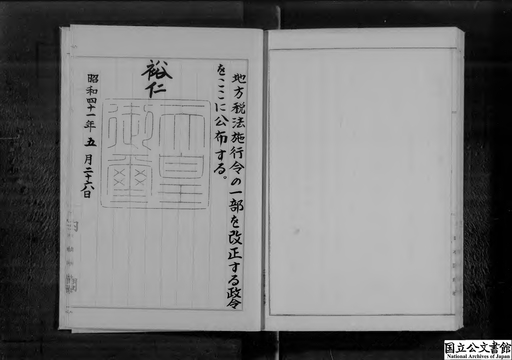 地方税法施行令の一部を改正する政令
をここに公布する。
裕仁
天皇
御璽
昭和四十一年五月二十六日
国立公文書館
National Archives of Japan